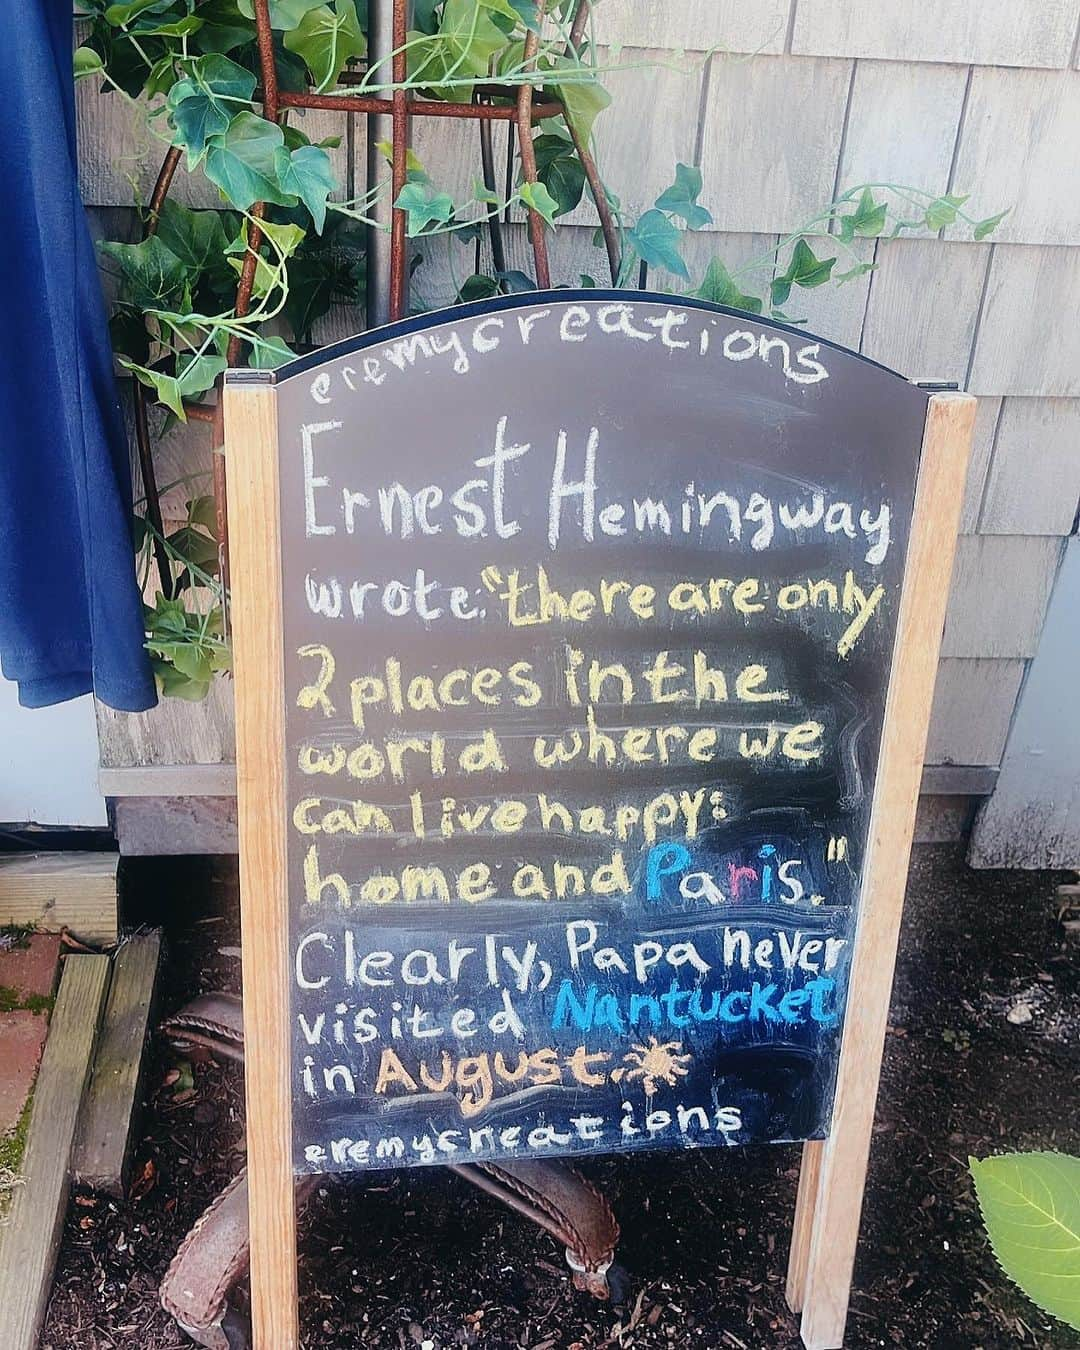 eremycreations
Ernest Hemingway
wrote: "there are only
2 places in the
world where we
can live happy:
home and Paris."
Clearly, Papa never
visited Nantucket
in August.
eremycreations